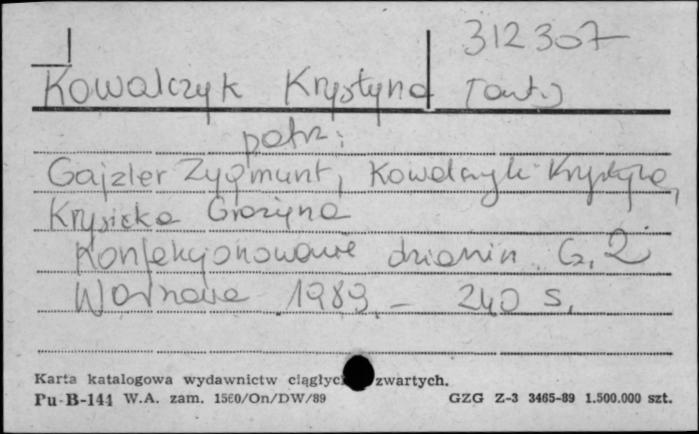 312307
Kowalczyk Krystyna
patrz:
Gajzler Zygmunt, Kowalczyk Krystyna,
Krysicka Grażyna
Konfekcjonowanie dzianin. Cz. 2
Warszawa 1989. – 240 s.
Karta katalogowa wydawnictw ciągłyc zwartych.
Pu-B-144 W.A. zam. 1560/On/DW/89 GZG Z-3 3465-89 1.500.000 szt.